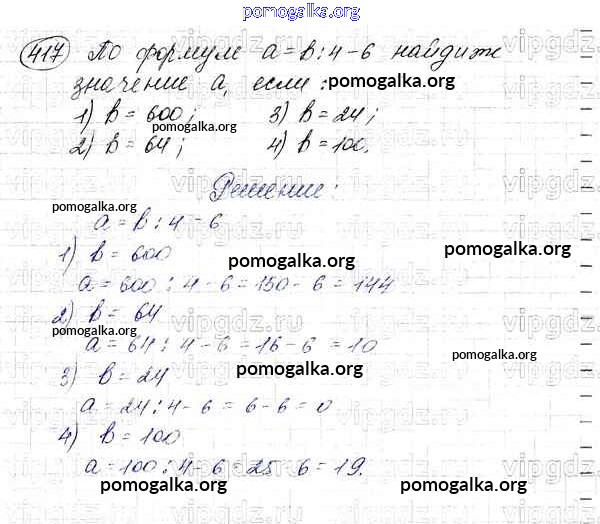 pomogalka.org
417 По формуле a = b : 4 - 6 найдите
значение a, если :
pomogalka.org
1) b = 600; 3) b = 24;
pomogalka.org
2) b = 64; 4) b = 100.
pomogalka.org
Решение:
pomogalka.org
a = b : 4 - 6
1) b = 600
pomogalka.org
pomogalka.org
a = 600 : 4 - 6 = 150 - 6 = 144
2) b = 64
pomogalka.org
a = 64 : 4 - 6 = 16 - 6 = 10
pomogalka.org
3) b = 24
pomogalka.org
a = 24 : 4 - 6 = 6 - 6 = 0
4) b = 100
a = 100 : 4 - 6 = 25 - 6 = 19.
pomogalka.org
pomogalka.org